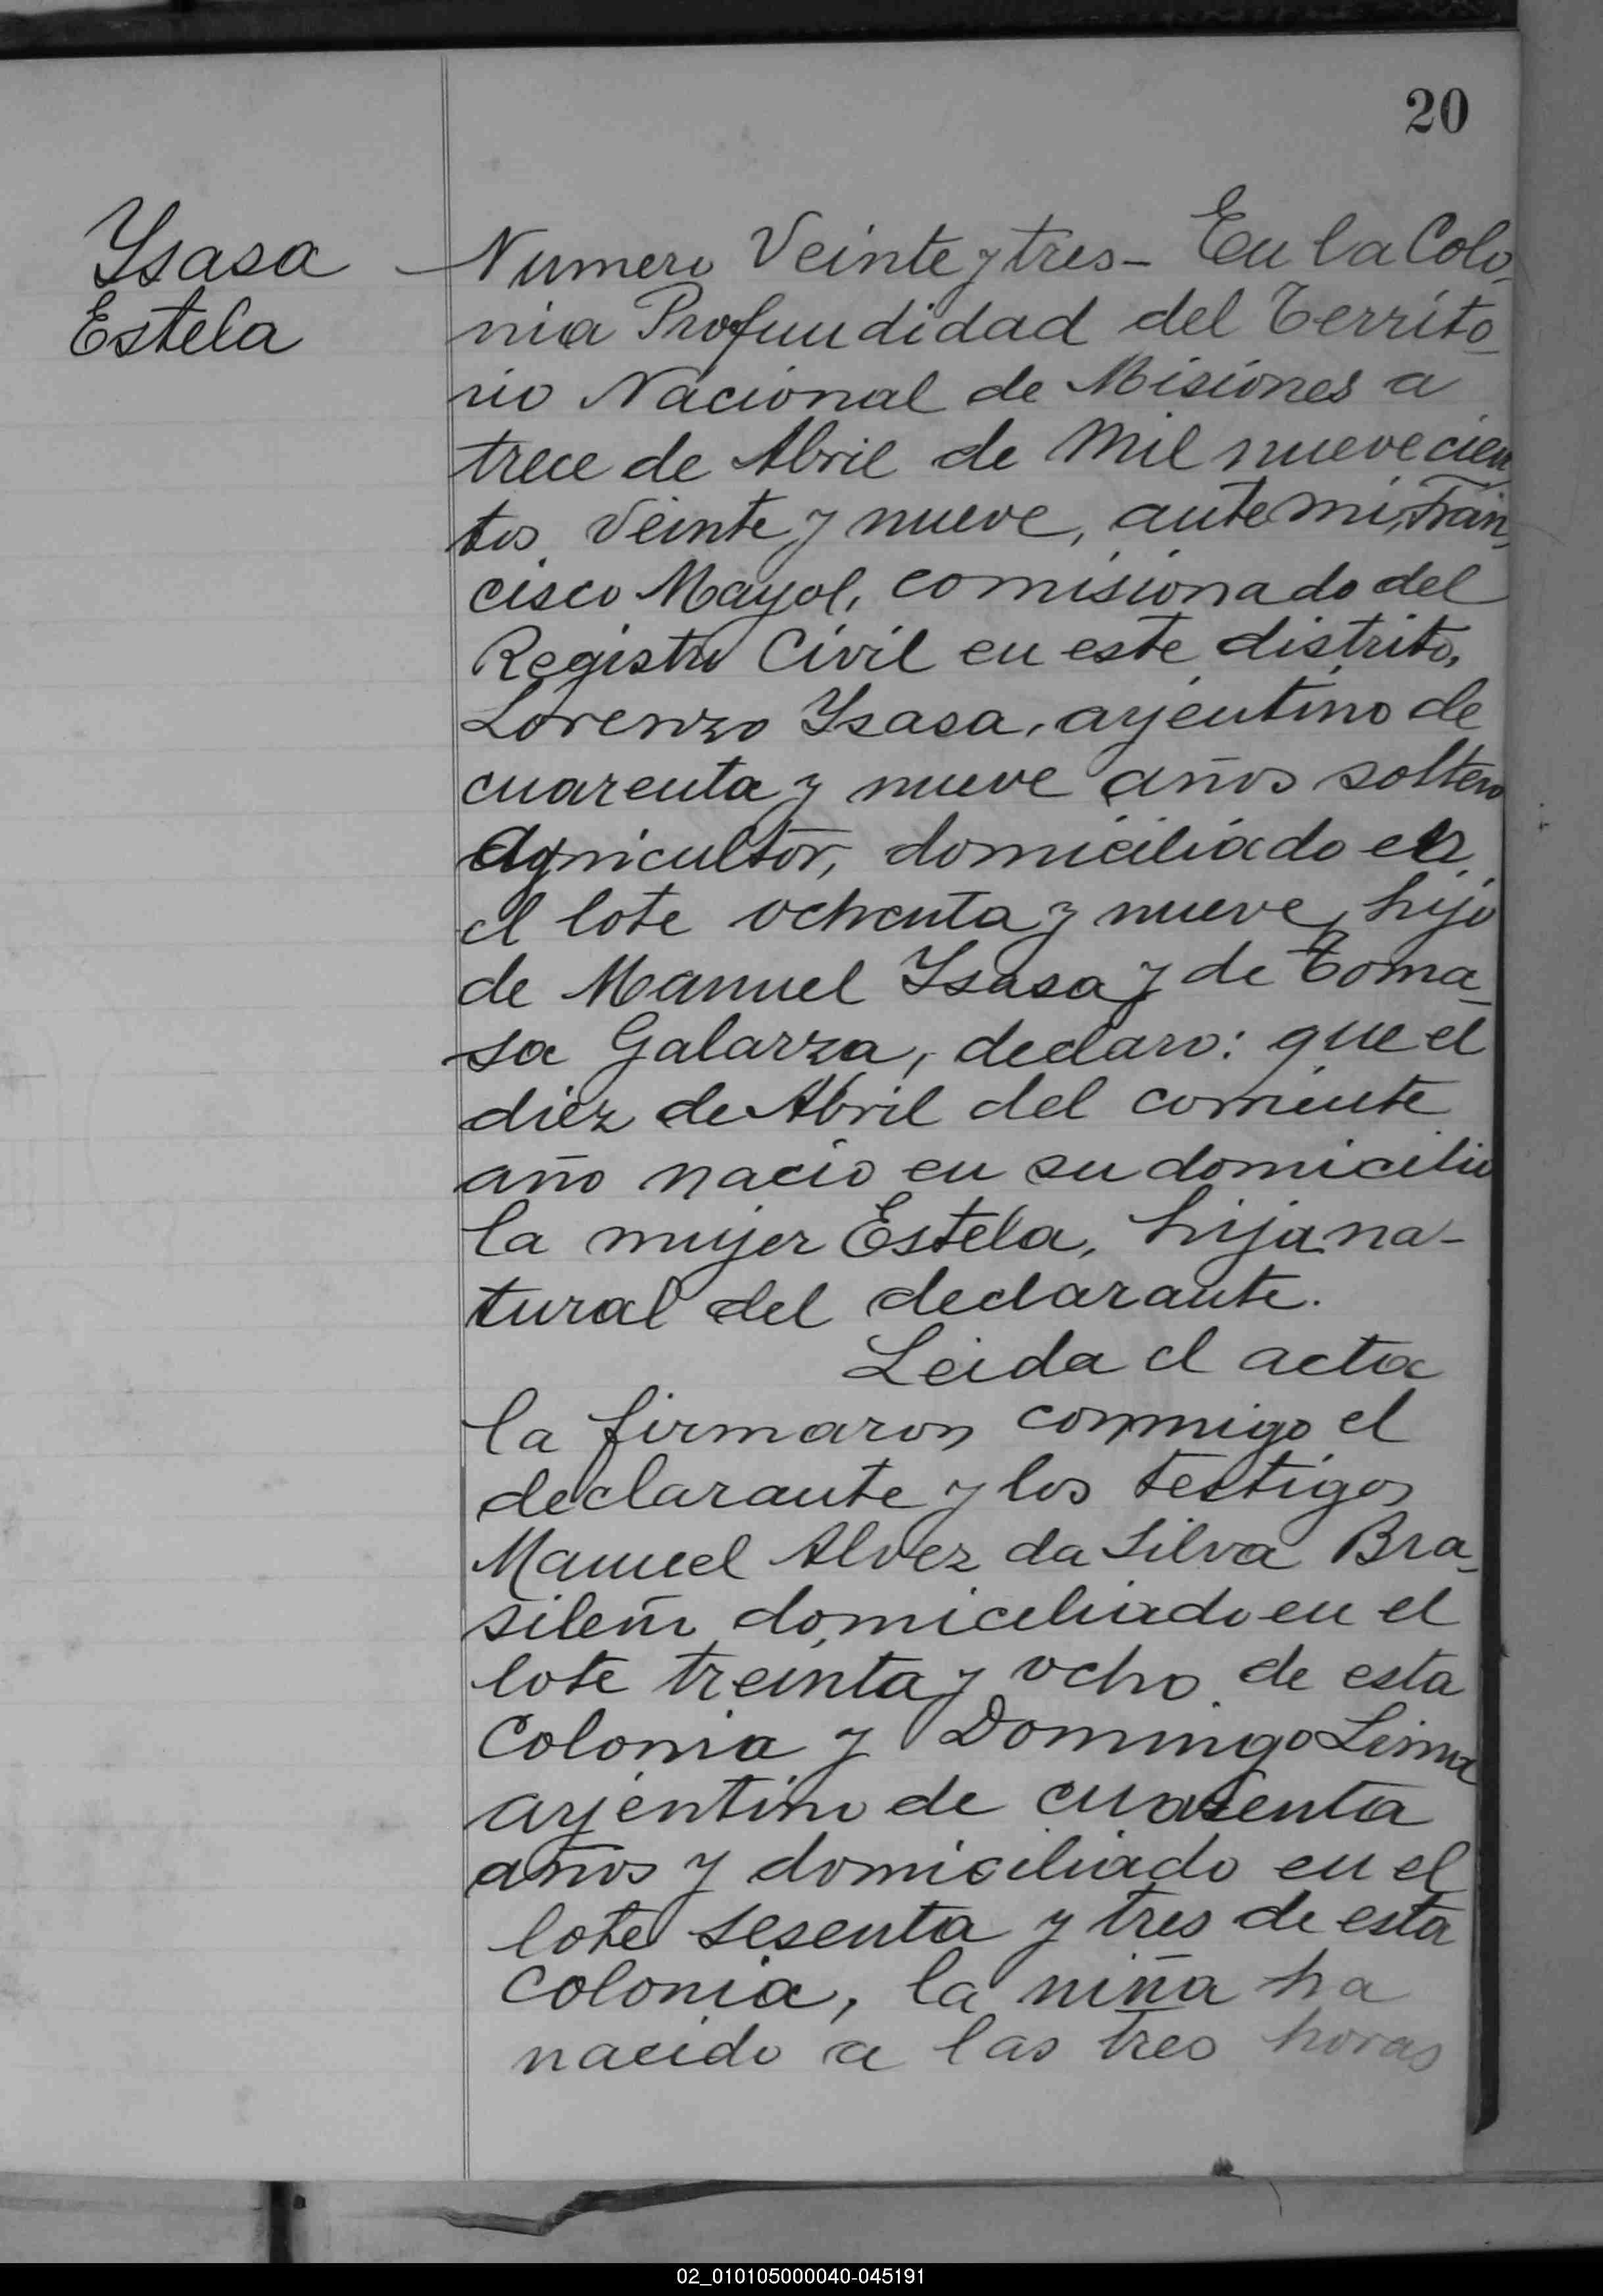 20
Ysasa
Estela
Numero Veinte y tres - En la Colo-
nia Profundidad del Territo-
rio Nacional de Misiones a
trece de Abril de Mil nuevecien
tos veinte y nueve, ante mi, Fran-
cisco Mayol, comisionado del
Registro Civil en este distrito,
Lorenzo Ysasa, arjentino de
cuarenta y nueve años soltero
Agricultor, domiciliado en
el lote ochenta y nueve, hijo
de Manuel Ysasa y de Toma-
sa Galarza, declaro: que el
diez de Abril del corriente
año nacio en su domicilio
la mujer Estela, hija na-
tural del declarante.
Leida el acta
la firmaron conmigo el
declarante y los testigos
Manuel Alvez da Silva Bra-
sileño domiciliado en el
lote treinta y ocho de esta
Colonia y Domingo Lima
arjentino de cuarenta
años y domiciliado en el
lote sesenta y tres de esta
Colonia, la niña ha
nacido a las tres horas
02_010105000040-045191